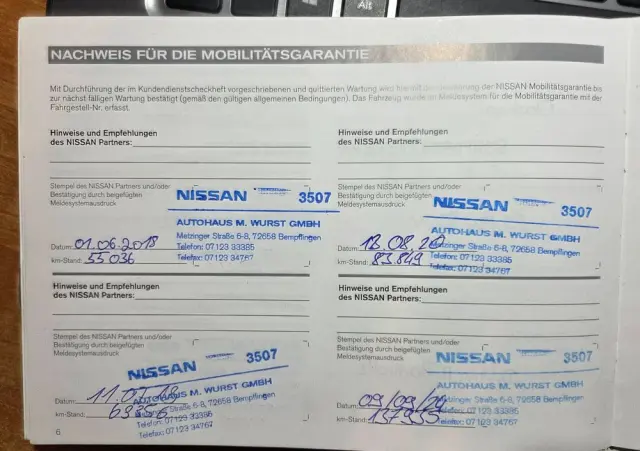 NACHWEIS FÜR DIE MOBILITÄTSGARANTIE
Mit Durchführung der im Kundendienstscheckheft vorgeschriebenen und quittierten Wartung wird hiermit die Verlängerung der NISSAN Mobilitätsgarantie bis
zur nächst-fälligen Wartung bestätigt (gemäß den gültigen allgemeinen Bedingungen). Das Fahrzeug wurde im Meldesystem für die Mobilitätsgarantie mit der
Fahrgestell-Nr. erfasst.
Hinweise und Empfehlungen
des NISSAN Partners:
Stempel des NISSAN Partners und/oder
Bestätigung durch beigefügten
Meldesystemausdruck
NISSAN 3507
AUTOHAUS M. WURST GMBH
Metzinger Straße 6-8, 72658 Bempflingen
Telefon: 07123 33385
Telefax: 07123 34767
Datum: 01.06.2018
km-Stand: 55036
Hinweise und Empfehlungen
des NISSAN Partners:
Stempel des NISSAN Partners und/oder
Bestätigung durch beigefügten
Meldesystemausdruck
NISSAN 3507
AUTOHAUS M. WURST GMBH
Metzinger Straße 6-8, 72658 Bempflingen
Telefon: 07123 33385
Telefax: 07123 34767
Datum: 18.08.20
km-Stand: 83849
Hinweise und Empfehlungen
des NISSAN Partners:
Stempel des NISSAN Partners und/oder
Bestätigung durch beigefügten
Meldesystemausdruck
NISSAN 3507
AUTOHAUS M. WURST GMBH
Metzinger Straße 6-8, 72658 Bempflingen
Telefon: 07123 33385
Telefax: 07123 34767
Datum:
km-Stand:
Hinweise und Empfehlungen
des NISSAN Partners:
Stempel des NISSAN Partners und/oder
Bestätigung durch beigefügten
Meldesystemausdruck
NISSAN 3507
AUTOHAUS M. WURST GMBH
Metzinger Straße 6-8, 72658 Bempflingen
Telefon: 07123 33385
Telefax: 07123 34767
Datum:
km-Stand:
6
Alt